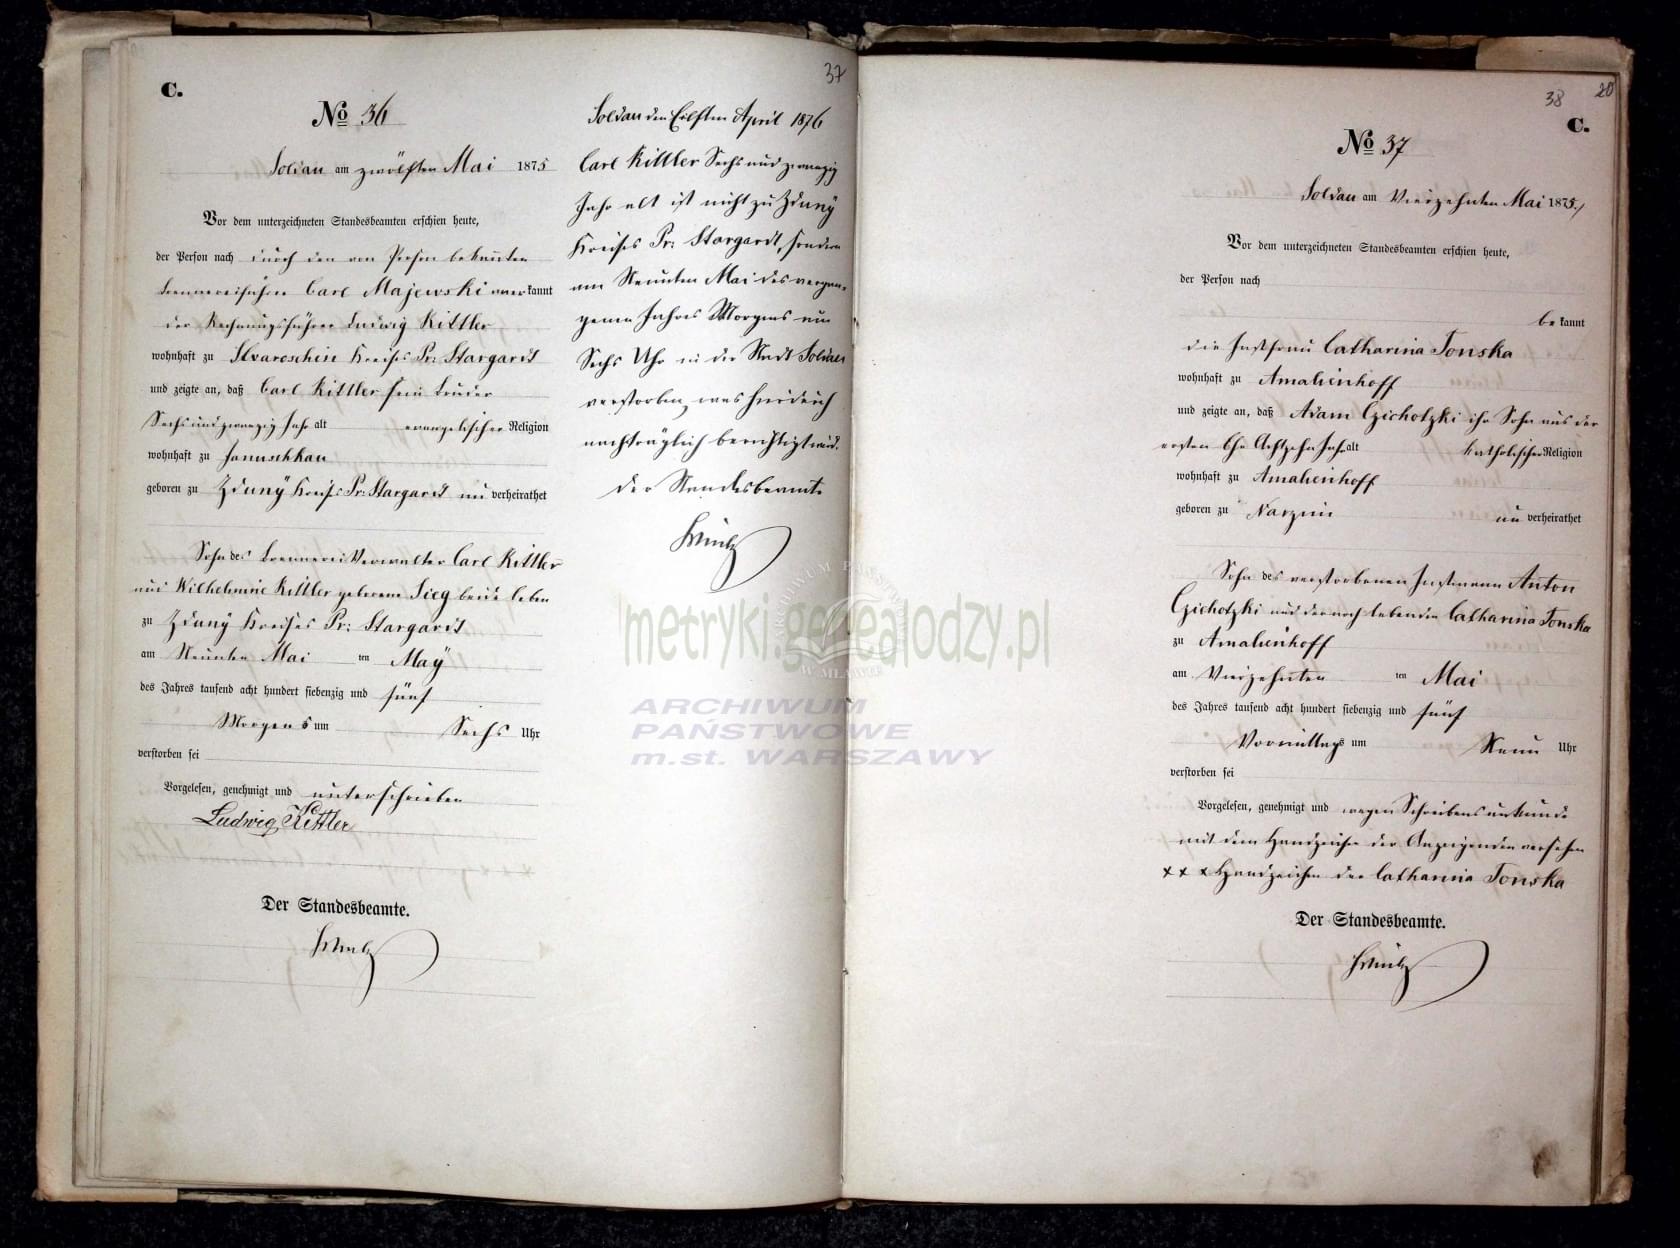 C.
37
№ 36
Soldau am zwölften Mai 1875
Vor dem unterzeichneten Standesbeamten erschien heute,
der Person nach durch den von Person bekannten
Brennereiführer Carl Majewski anerkannt
der Rechnungsführer Ludwig Kittler
wohnhaft zu Kreises Pr: Stargardt
und zeigte an, daß Carl Kittler sein Bruder
Sechsundzwanzig Jahr alt evangelischer Religion
wohnhaft zu Januschkau
geboren zu Zduny Kreises Pr: Stargardt unverheirathet
Sohn des Brennerei Verwalter Carl Kittler
und Wilhelmine Kittler geborene Sieg beide leben
zu Zduny Kreises Pr: Stargardt
am Neunten Mai ten May
des Jahres tausend acht hundert siebenzig und fünf
Morgens um Sechs Uhr
verstorben sei
Vorgelesen, genehmigt und unterschrieben
Ludwig Kittler
Der Standesbeamte.
Soldau den Eilften April 1876
Carl Kittler Sechs und zwanzig
Jahr alt ist nicht zu Zduny
Kreises Pr: Stargardt, sondern
am Neunten Mai des vergan-
genen Jahres Morgens um
Sechs Uhr in der Stadt Soldau
verstorben, was hierdurch
nachträglich berichtigt wird.
Der Standesbeamte
38
20
C.
№ 37
Soldau am Vierzehnten Mai 1875./
Vor dem unterzeichneten Standesbeamten erschien heute,
der Person nach
bekannt
die Instfrau Catharina Tonska
wohnhaft zu Amalienhoff
und zeigte an, daß Adam Czichotzki ihr Sohn aus der
ersten Ehe Achtzehn Jahr alt katholischer Religion
wohnhaft zu Amalienhoff
geboren zu Narzim unverheirathet
Sohn des verstorbenen Instmann Anton
Czichotzki und der noch lebenden Catharina Tonska
zu Amalienhoff
am Vierzehnten ten Mai
des Jahres tausend acht hundert siebenzig und fünf
Vormittags um Neun Uhr
verstorben sei
Vorgelesen, genehmigt und wegen Schreibensunkunde
mit dem Handzeichen der Anzeigenden versehen
x x x Handzeichen der Catharina Tonska
Der Standesbeamte.
metryki.genealodzy.pl
ARCHIWUM PAŃSTWOWE W MŁAWIE
ARCHIWUM
PAŃSTWOWE
m.st. WARSZAWY